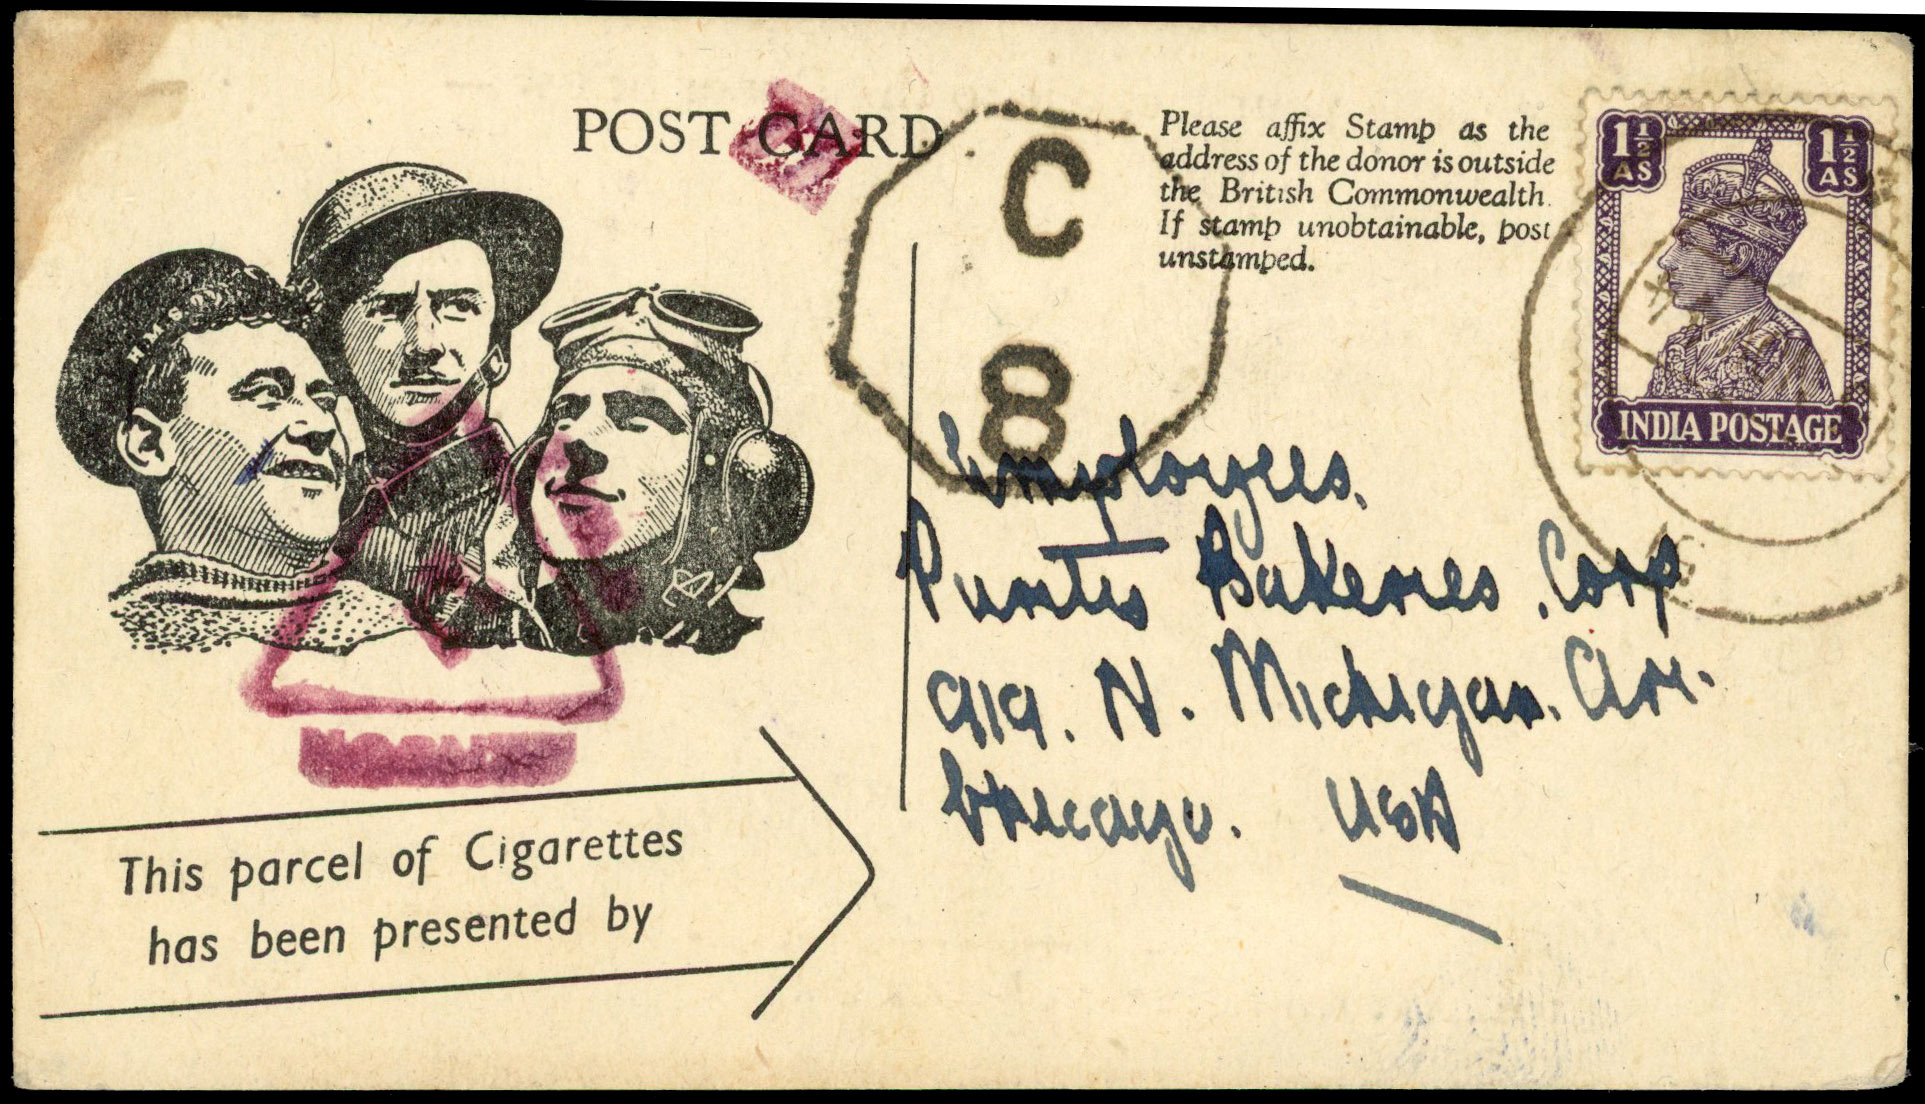 POST CARD
Please affix Stamp as the
address of the donor is outside
the British Commonwealth.
If stamp unobtainable, post
unstamped.
1½ AS 1½ AS
INDIA POSTAGE
C
8
H.M.S
Employees.
Bakeries. Corp
919. N. Michigan. Ave.
Chicago. USA
This parcel of Cigarettes
has been presented by